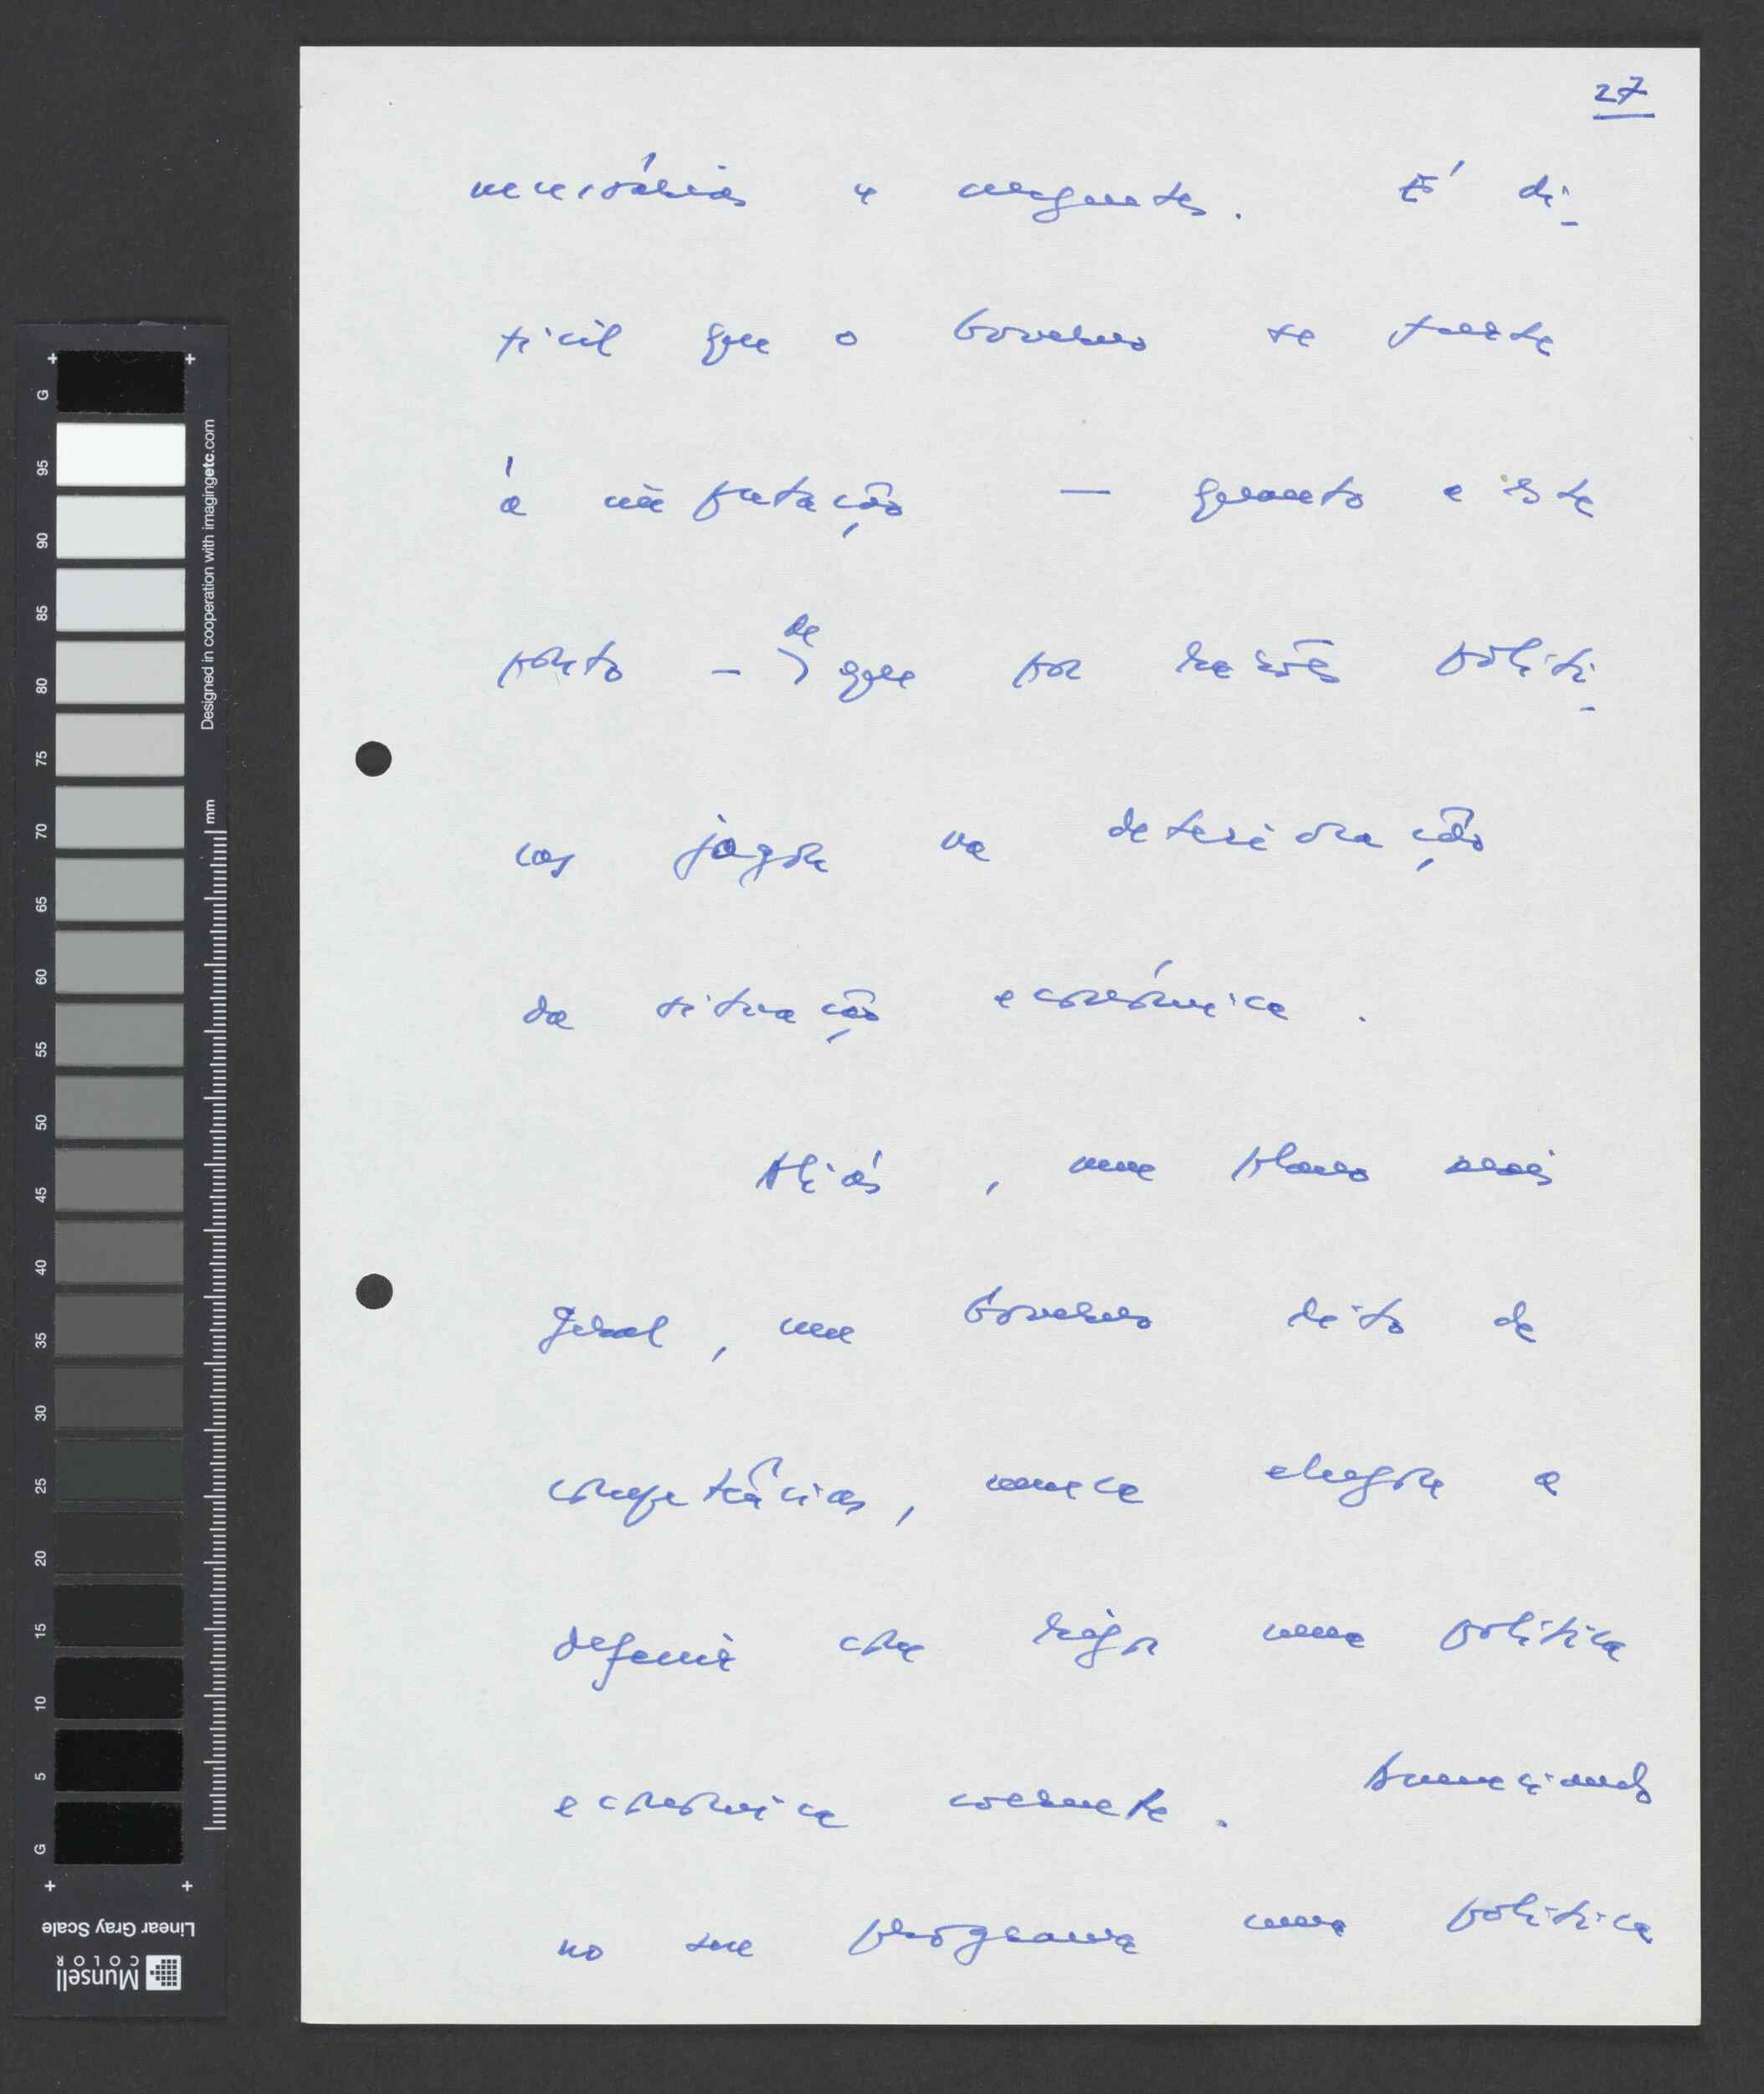 27
necessárias e urgentes. É di-
fícil que o Governo se furte
à imputação — quanto a este
ponto — de que por razões políti-
cas jogou na deterioração
da situação económica.
Aliás, num plano mais
geral, um Governo dito de
competências, nunca chegou a
definir com rigor uma política
económica coerente. Anunciando
no seu programa uma política
G 95 90 85 80 75 70 65 60 55 50 45 40 35 30 25 20 15 10 5 G
Designed in cooperation with imagingetc.com
mm
Linear Gray Scale
Munsell
COLOR